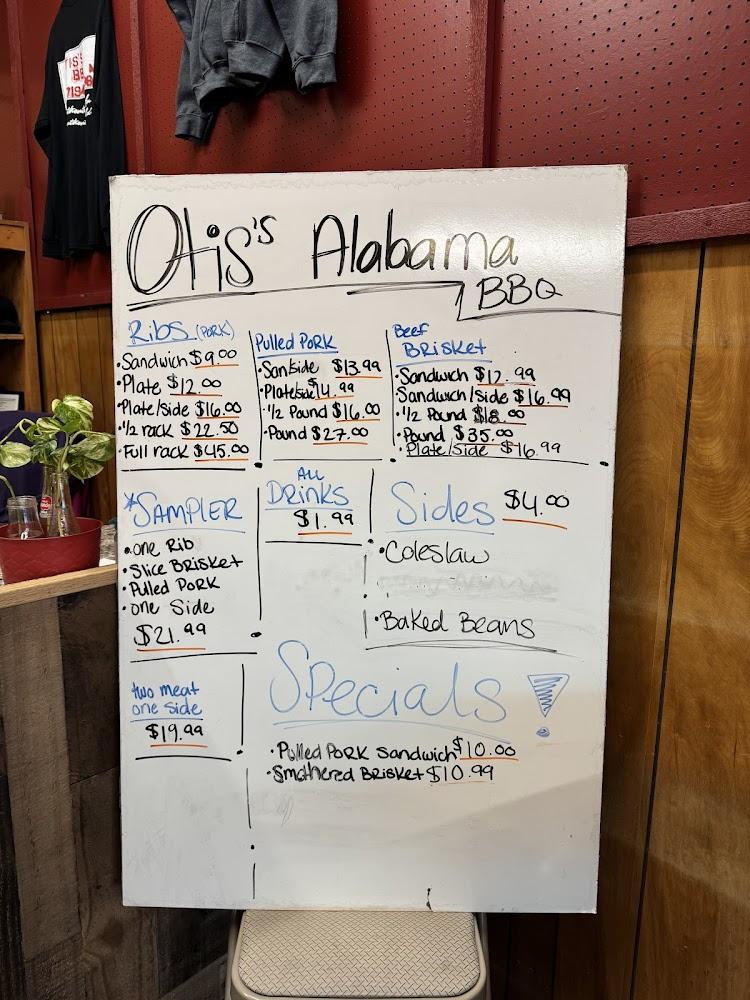 Otis's Alabama
BBQ
Ribs (PORK)
•Sandwich $9.00
•Plate $12.00
•Plate/Side $16.00
•1/2 rack $22.50
•Full rack $45.00
Pulled PORK
•San/side $13.99
•Plate/side $14.99
•1/2 Pound $16.00
•Pound $27.00
Beef
BRISKET
•Sandwich $12.99
•Sandwich/Side $16.99
•1/2 Pound $18.00
•Pound $35.00
•Plate/Side $16.99
*SAMPLER
•One Rib
•Slice BRISKET
•Pulled PORK
•One Side
$21.99
ALL
DRINKS
$1.99
Sides $4.00
•Coleslaw
•Baked Beans
two meat
one side
$19.99
Specials!
•Pulled PORK Sandwich $10.00
•Smothered BRISKET $10.99